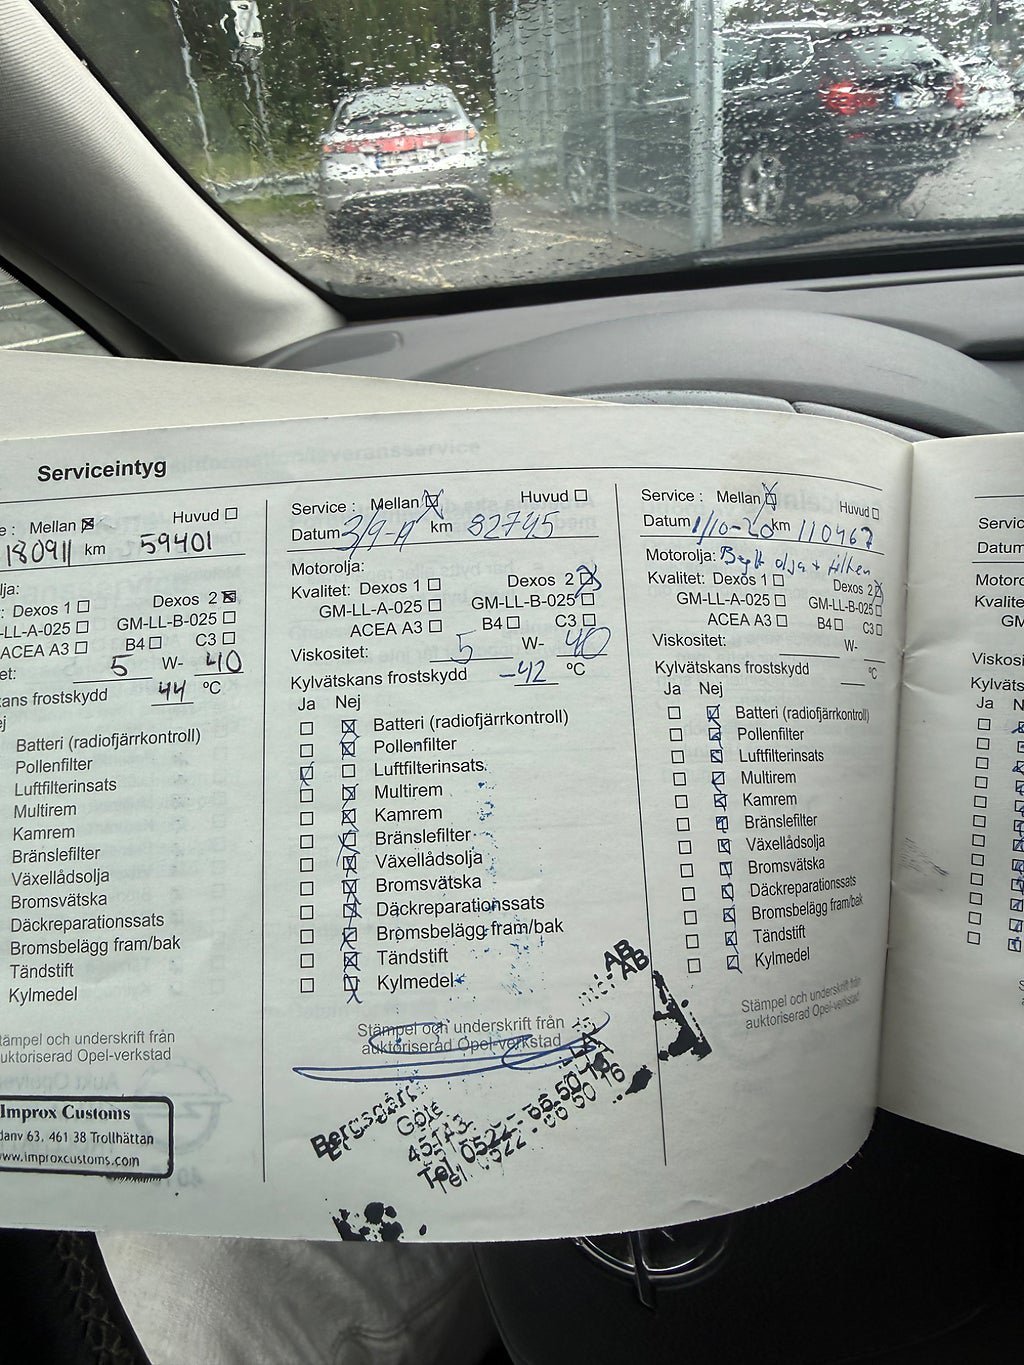 Serviceintyg
e: Mellan Huvud
180911 km 59401
lja:
: Dexos 1 Dexos 2
-LL-A-025 GM-LL-B-025
ACEA A3 B4 C3
et: 5 W- 40
kans frostskydd 44 °C
ej
Batteri (radiofjärrkontroll)
Pollenfilter
Luftfilterinsats
Multirem
Kamrem
Bränslefilter
Växellådsolja
Bromsvätska
Däckreparationssats
Bromsbelägg fram/bak
Tändstift
Kylmedel
tämpel och underskrift från
auktoriserad Opel-verkstad
Improx Customs
danv 63, 461 38 Trollhättan
www.improxcustoms.com
Service: Mellan Huvud
Datum km 82745
Motorolja:
Kvalitet: Dexos 1 Dexos 2
GM-LL-A-025 GM-LL-B-025
ACEA A3 B4 C3
Viskositet: 5 W- 40
Kylvätskans frostskydd -42 °C
Ja Nej
Batteri (radiofjärrkontroll)
Pollenfilter
Luftfilterinsats
Multirem
Kamrem
Bränslefilter
Växellådsolja
Bromsvätska
Däckreparationssats
Bromsbelägg fram/bak
Tändstift
Kylmedel
Stämpel och underskrift från
auktoriserad Opel-verkstad
AB
AB
Tel. 0522 - 66 50 16
Service: Mellan Huvud
Datum 1/10-20 km 110467
Motorolja: Bytt olja + filter
Kvalitet: Dexos 1 Dexos 2
GM-LL-A-025 GM-LL-B-025
ACEA A3 B4 C3
Viskositet: W-
Kylvätskans frostskydd °C
Ja Nej
Batteri (radiofjärrkontroll)
Pollenfilter
Luftfilterinsats
Multirem
Kamrem
Bränslefilter
Växellådsolja
Bromsvätska
Däckreparationssats
Bromsbelägg fram/bak
Tändstift
Kylmedel
Stämpel och underskrift från
auktoriserad Opel-verkstad
Servic
Datum
Motoro
Kvalite
GM
Viskosi
Kylväts
Ja N